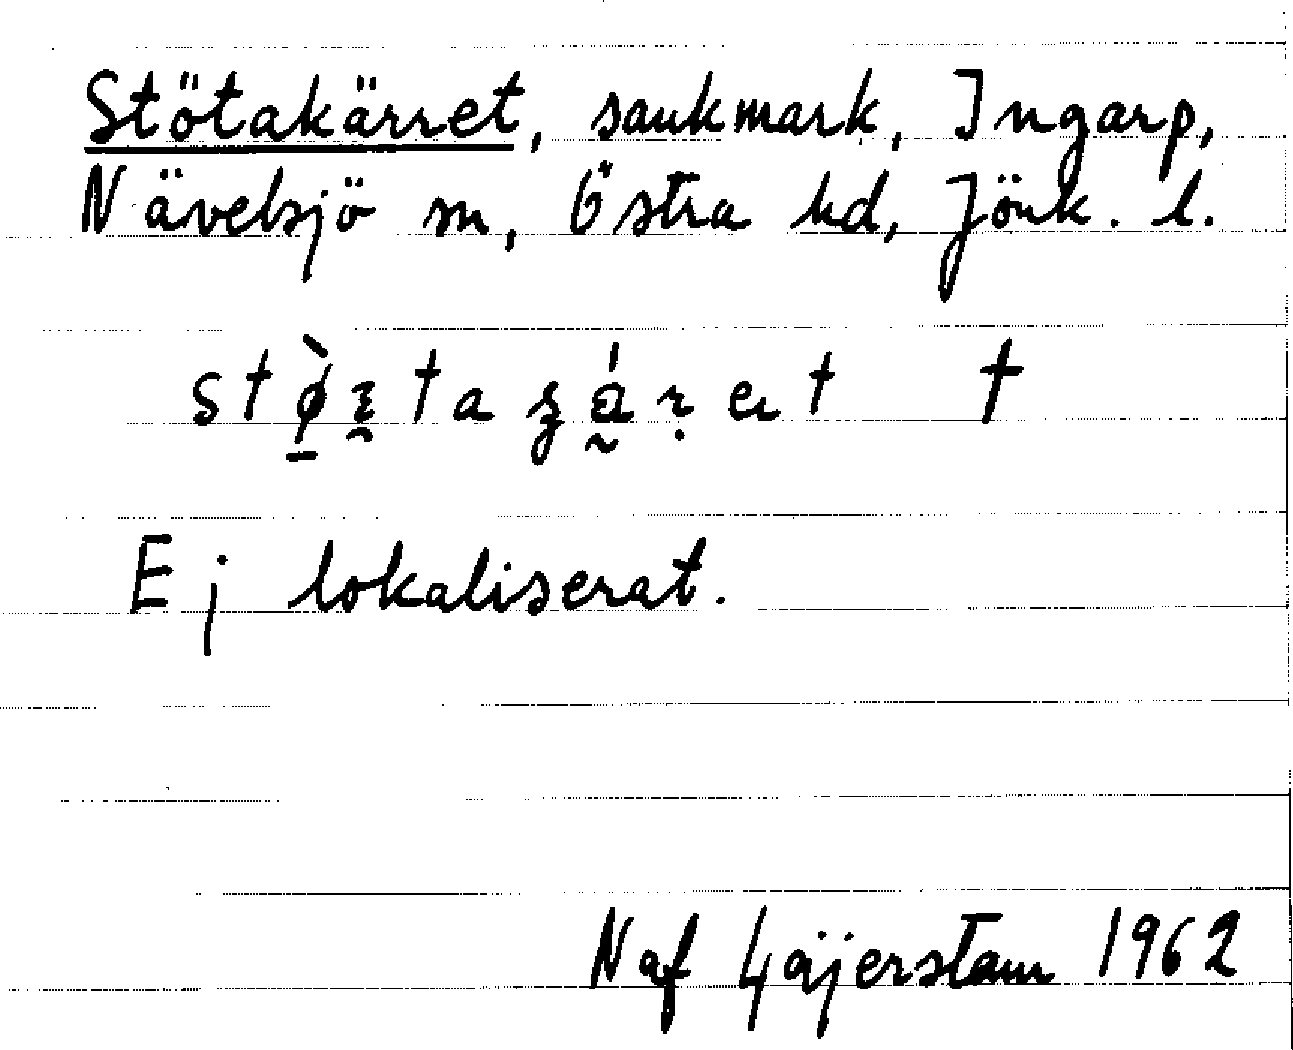 Stötakärret, sankmark, Ingarp,
Nävelsjö sn, Östra hd, Jönk. l.
Ej lokaliserat.
N af Gäijerstam 1962